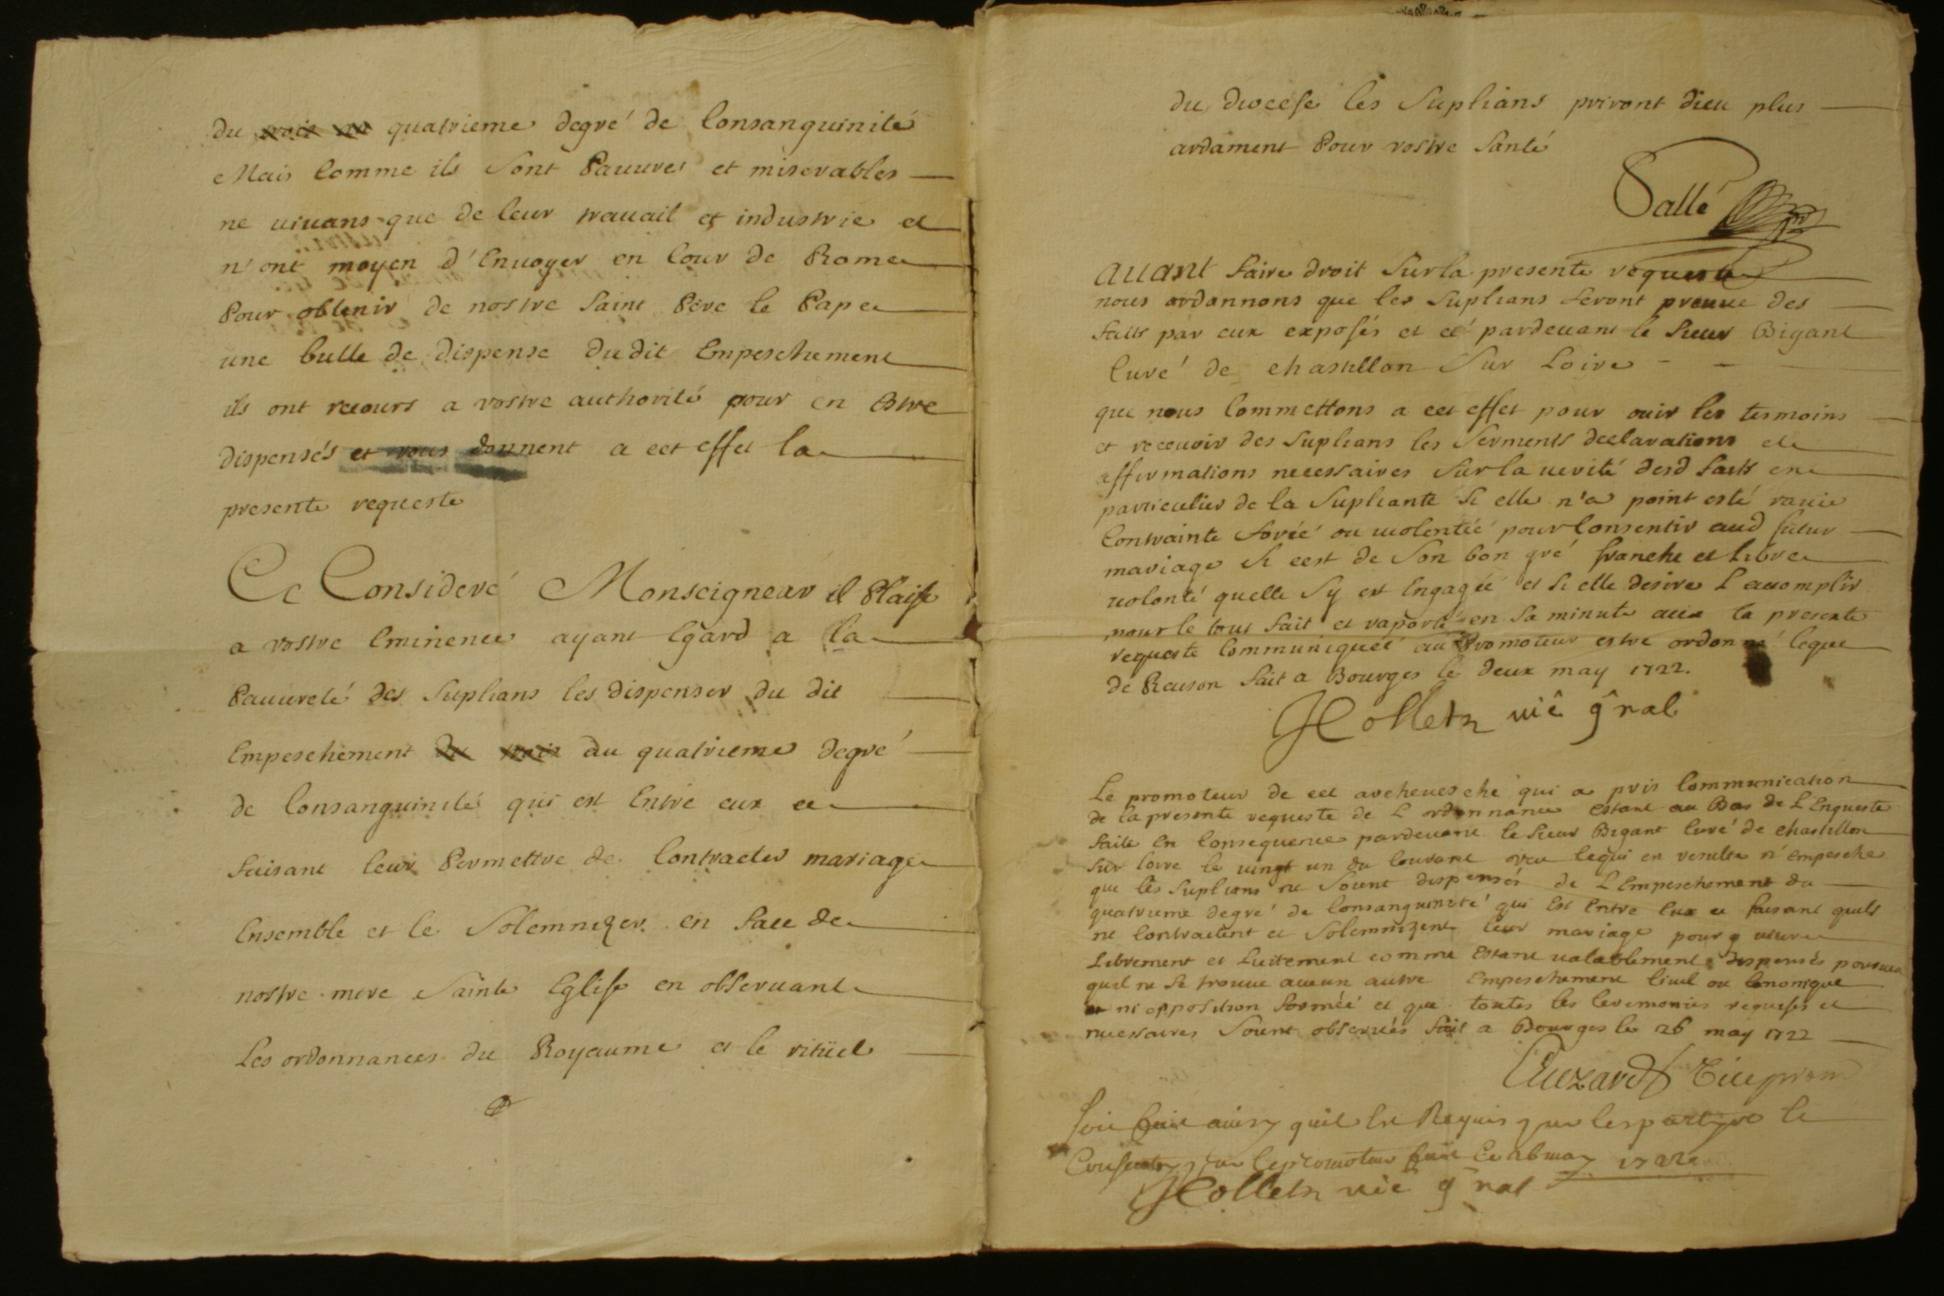 du quatrieme degré de Consanguinité
Mais Comme ils Sont Pauures et miserables
ne uiuans que de leur trauail et industrie et
n'ont moyen d'Enuoyer en Cour de Rome
Pour obtenir de nostre Saint Pere le Pape
une bulle de dispense du dit Empeschement
ils ont recours a vostre authorité pour en Estre
dispensés et vous donnent a cet effet la
presente requeste
Ce Consideré Monseigneur il Plaise
a vostre Eminence ayant Egard a la
Pauureté des Suplians les dispenser du dit
Empeschement du quatrieme degré
de Consanguinité qui est Entre eux et
faisant leur Permettre de Contracter mariage
Ensemble et le Solemnizer en face de
nostre mere Sainte Eglise en obseruant
Les ordonnances du Royaume et le rituel
du diocese les Suplians priront dieu plus
ardament Pour vostre Santé
Sallé
auant faire droit Sur la presente requeste
nous ordonnons que les Suplians feront preuue des
faits par eux exposés et ce pardeuant le Sieur Bigant
Curé de chastillon Sur Loire
que nous Commettons a cet effet pour ouir les tesmoins
et receuoir des Suplians les Serments declarations et
affirmations necessaires Sur la uerité desd faits en
particulier de la Supliante Si elle n'a point esté rauie
Contrainte forcée ou uiolentée pour Consentir aud futur
mariage Si cest de Son bon gré franche et Libre
uolonté quelle Sy est Engagée et Si elle desire L'accomplir
pour le tout fait et raporté en Sa minute auec la presente
requeste Communiquée au Promoteur estre ordonné ceque
de Raison fait a Bourges le deux may 1722.
vic gnal
Le promoteur de cet archeuesché qui a pris Communication
de la presente requeste de L'ordonnance Estant au Bas de L'Enqueste
faite En Consequence pardeuant le Sieur Bigant Curé de chastillon
Sur Loire le uingt un du Courant ueu cequi en resulte n'Empesche
que les Suplians ne Soient dispensés de L'Empeschement du
quatrieme degré de Consanguinité qui Est Entre Eux et faisant quils
ne Contractent et Solemnizent leur mariage pour y uiure
Librement et Licitement comme Estant ualablement dispensés pourueu
quil ne Se trouue aucun autre Empeschement Ciuil ou Canonique
ni opposition formée et que toutes les Ceremonies requises et
necessaires Soient obseruées fait a Bourges le 26 may 1722
Soit fait ainsy quil Est Requis par les parties Et
Consenty par le promoteur fait Ce 26 may 1722
vic gnal